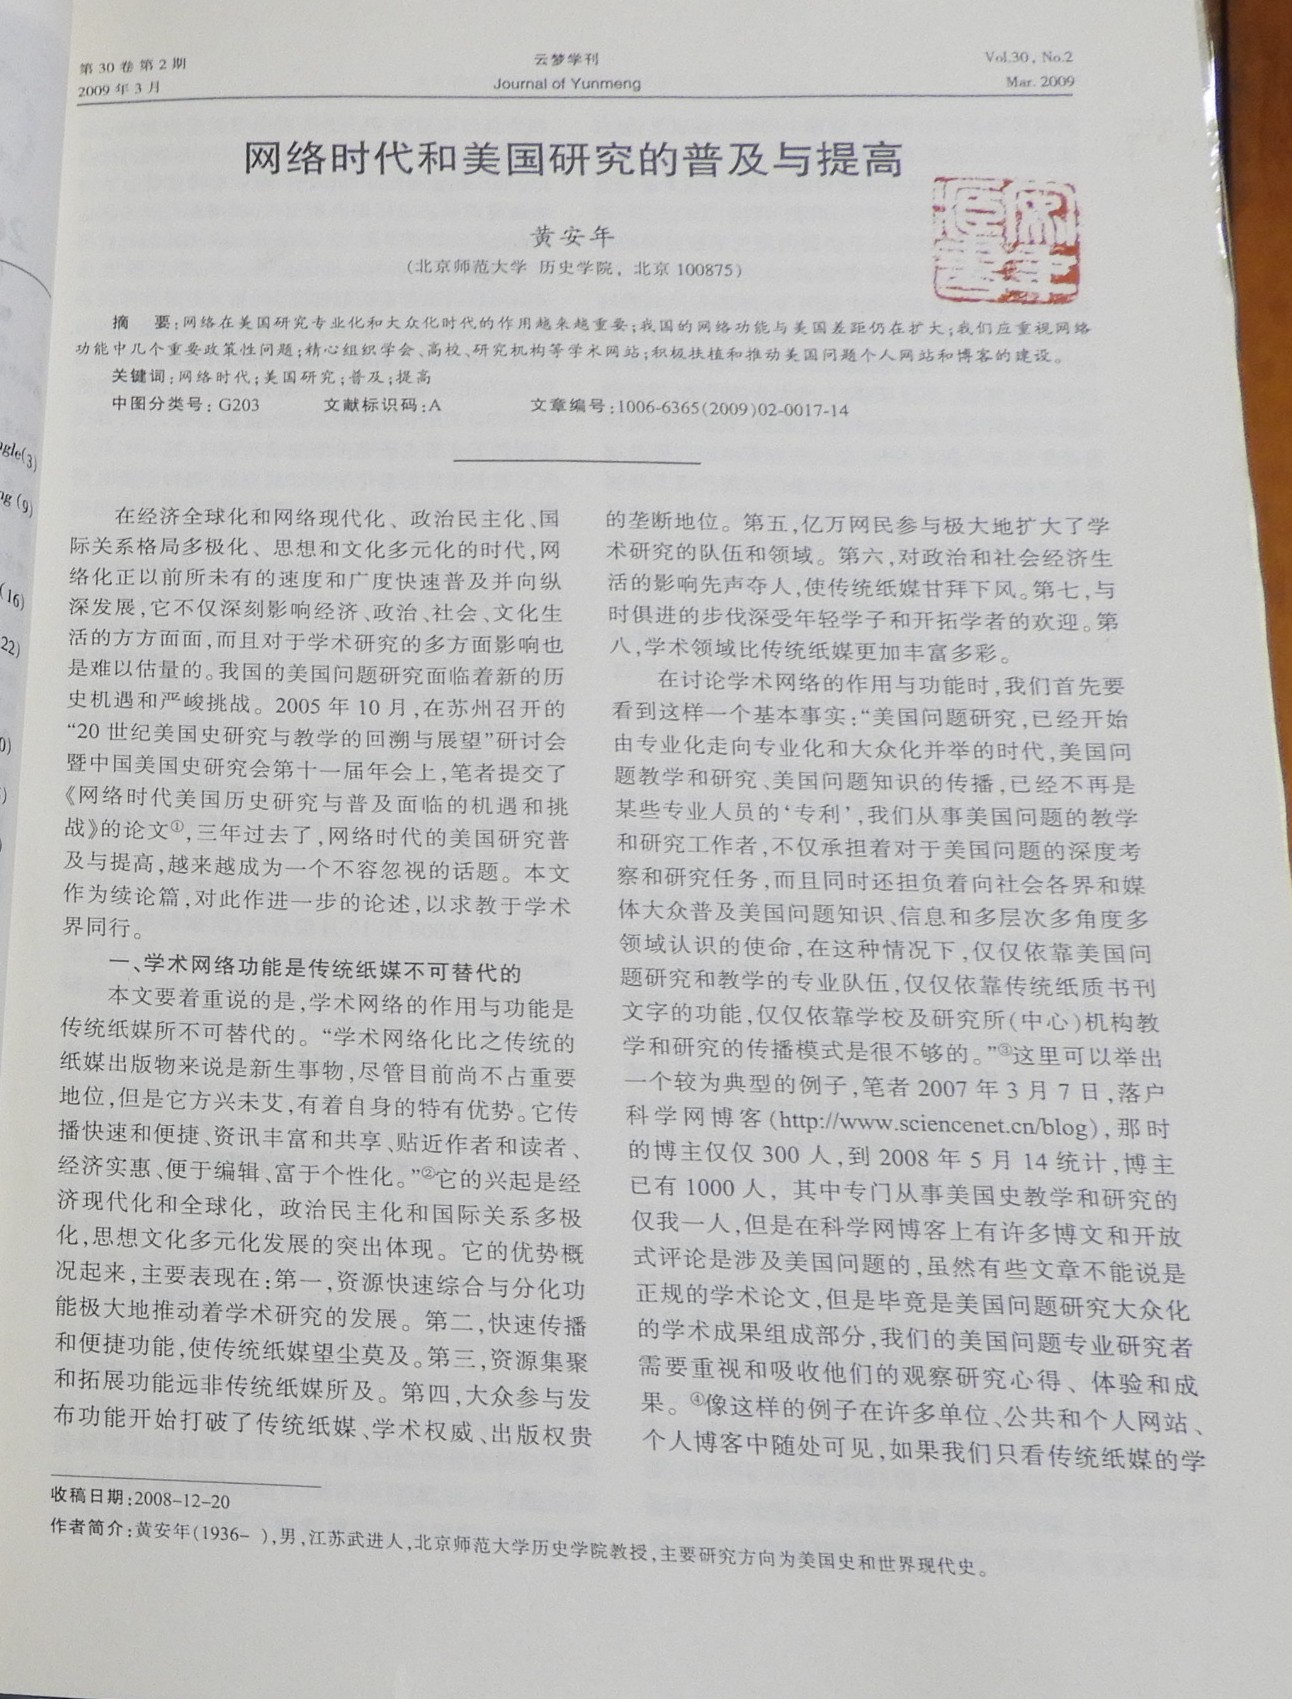 第 30 卷第 2 期
2009 年 3 月
云梦学刊
Journal of Yunmeng
Vol.30, No.2
Mar. 2009
网络时代和美国研究的普及与提高
黄安年
(北京师范大学 历史学院, 北京 100875)
摘 要:网络在美国研究专业化和大众化时代的作用越来越重要;我国的网络功能与美国差距仍在扩大;我们应重视网络
功能中几个重要政策性问题;精心组织学会、高校、研究机构等学术网站;积极扶植和推动美国问题个人网站和博客的建设。
关键词:网络时代;美国研究;普及;提高
中图分类号: G203 文献标识码:A 文章编号:1006-6365(2009)02-0017-14
在经济全球化和网络现代化、政治民主化、国
际关系格局多极化、思想和文化多元化的时代,网
络化正以前所未有的速度和广度快速普及并向纵
深发展,它不仅深刻影响经济、政治、社会、文化生
活的方方面面,而且对于学术研究的多方面影响也
是难以估量的。我国的美国问题研究面临着新的历
史机遇和严峻挑战。2005 年 10 月,在苏州召开的
“20 世纪美国史研究与教学的回溯与展望”研讨会
暨中国美国史研究会第十一届年会上,笔者提交了
《网络时代美国历史研究与普及面临的机遇和挑
战》的论文①,三年过去了,网络时代的美国研究普
及与提高,越来越成为一个不容忽视的话题。本文
作为续论篇,对此作进一步的论述,以求教于学术
界同行。
一、学术网络功能是传统纸媒不可替代的
本文要着重说的是,学术网络的作用与功能是
传统纸媒所不可替代的。“学术网络化比之传统的
纸媒出版物来说是新生事物,尽管目前尚不占重要
地位,但是它方兴未艾,有着自身的特有优势。它传
播快速和便捷、资讯丰富和共享、贴近作者和读者、
经济实惠、便于编辑、富于个性化。”②它的兴起是经
济现代化和全球化, 政治民主化和国际关系多极
化,思想文化多元化发展的突出体现。它的优势概
况起来,主要表现在:第一,资源快速综合与分化功
能极大地推动着学术研究的发展。第二,快速传播
和便捷功能,使传统纸媒望尘莫及。第三,资源集聚
和拓展功能远非传统纸媒所及。第四,大众参与发
布功能开始打破了传统纸媒、学术权威、出版权贵
的垄断地位。第五,亿万网民参与极大地扩大了学
术研究的队伍和领域。第六,对政治和社会经济生
活的影响先声夺人,使传统纸媒甘拜下风。第七,与
时俱进的步伐深受年轻学子和开拓学者的欢迎。第
八,学术领域比传统纸媒更加丰富多彩。
在讨论学术网络的作用与功能时,我们首先要
看到这样一个基本事实:“美国问题研究,已经开始
由专业化走向专业化和大众化并举的时代,美国问
题教学和研究、美国问题知识的传播,已经不再是
某些专业人员的‘专利’,我们从事美国问题的教学
和研究工作者,不仅承担着对于美国问题的深度考
察和研究任务,而且同时还担负着向社会各界和媒
体大众普及美国问题知识、信息和多层次多角度多
领域认识的使命,在这种情况下,仅仅依靠美国问
题研究和教学的专业队伍,仅仅依靠传统纸质书刊
文字的功能,仅仅依靠学校及研究所(中心)机构教
学和研究的传播模式是很不够的。”③这里可以举出
一个较为典型的例子,笔者 2007 年 3 月 7 日,落户
科学网博客(http://www.sciencenet.cn/blog),那时
的博主仅仅 300 人,到 2008 年 5 月 14 统计,博主
已有 1000 人, 其中专门从事美国史教学和研究的
仅我一人,但是在科学网博客上有许多博文和开放
式评论是涉及美国问题的,虽然有些文章不能说是
正规的学术论文,但是毕竟是美国问题研究大众化
的学术成果组成部分,我们的美国问题专业研究者
需要重视和吸收他们的观察研究心得、体验和成
果。④像这样的例子在许多单位、公共和个人网站、
个人博客中随处可见,如果我们只看传统纸媒的学
收稿日期:2008-12-20
作者简介:黄安年(1936- ),男,江苏武进人,北京师范大学历史学院教授,主要研究方向为美国史和世界现代史。